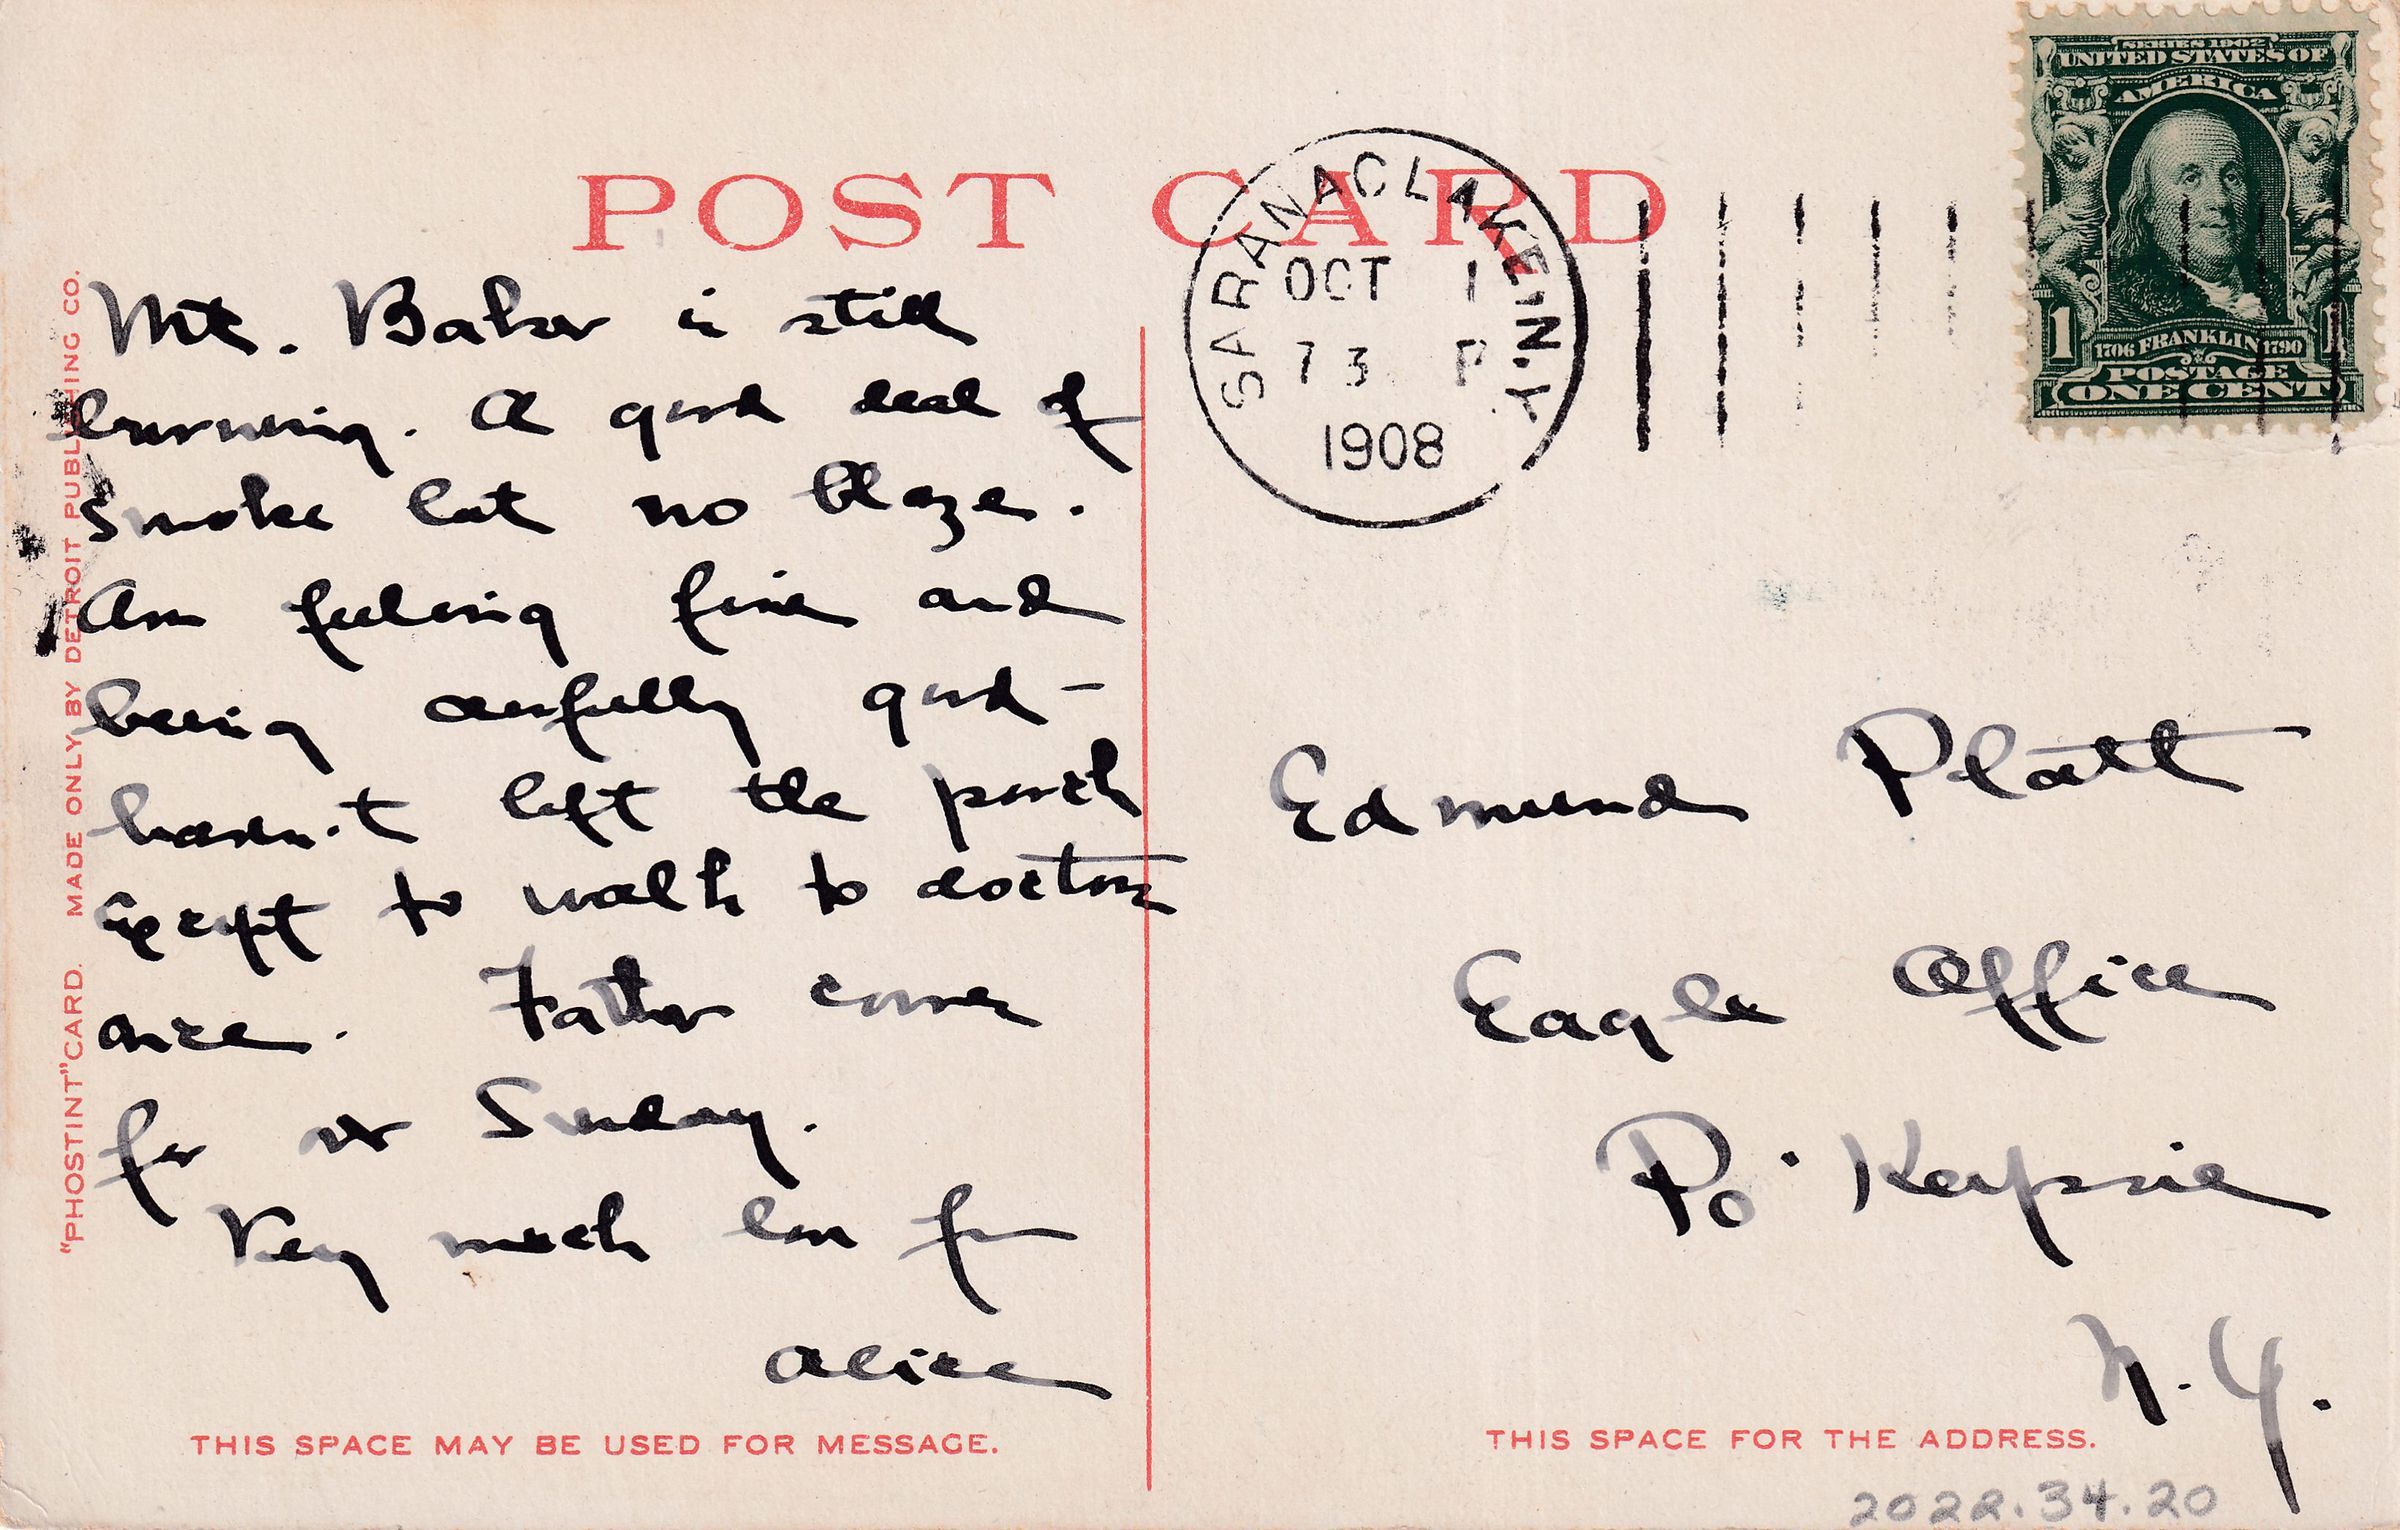 POST CARD
SERIES 1902
UNITED STATES OF
AMERICA
1 1
1706 FRANKLIN 1790
POSTAGE
ONE CENT
SARANAC LAKE, N.Y.
OCT 1
73 P
1908
Mt. Baker is still
burning. A good deal of
smoke but no blaze.
Am feeling fine and
being awfully good –
haven't left the porch
except to walk to doctors
once. Father comes
for Sunday.
Very much love from
Alice
Edmund Platt
Eagle Office
Po'Keepsie
N.Y.
"PHOSTINT" CARD. MADE ONLY BY DETROIT PUBLISHING CO.
THIS SPACE MAY BE USED FOR MESSAGE.
THIS SPACE FOR THE ADDRESS.
2022.34.20